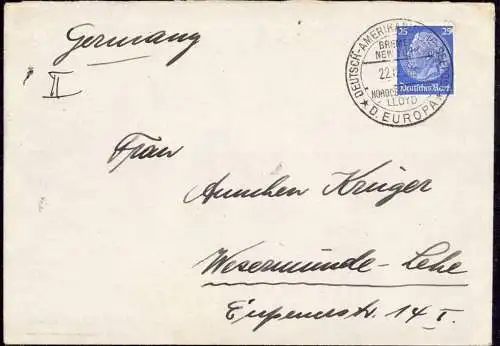 Germany
II
DEUTSCH-AMERIKAN
BREME
NEW
22.
NORDD
LLOYD
★ D. EUROPA ★
25 25
Deutsches Reich
Frau
Annchen Krüger
Wesermünde-Lehe
Eupenerstr. 14 I.